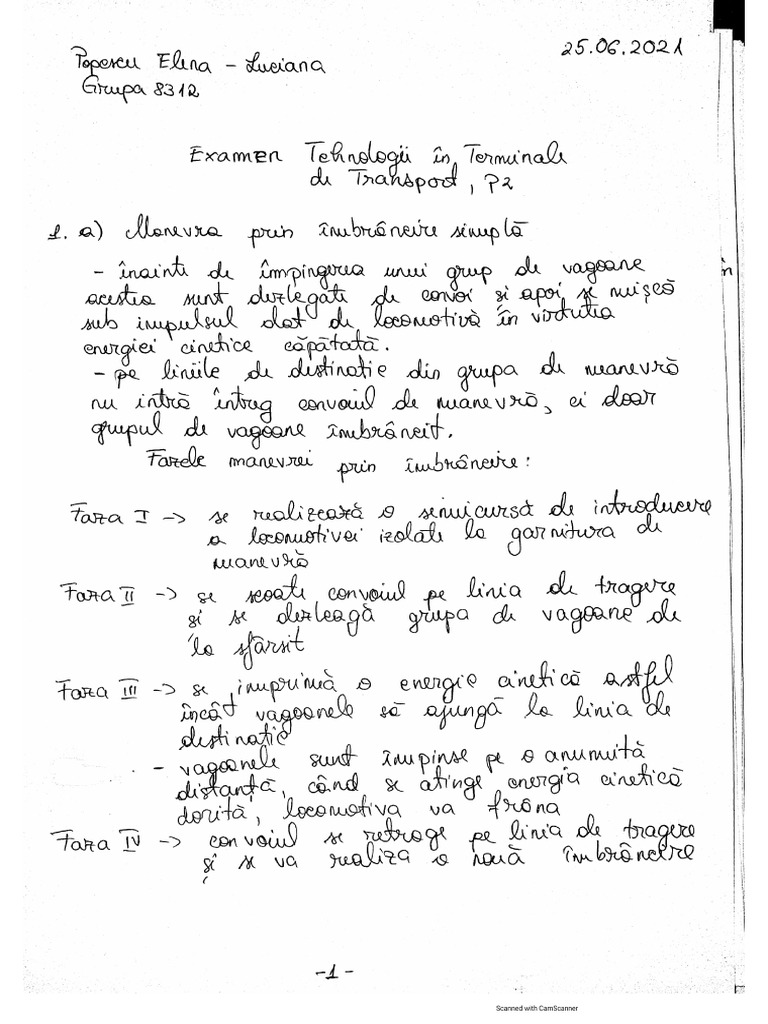 25.06.2021
Popescu Elena - Luciana
Grupa 8312
Examen Tehnologii în Terminale
de Transport, P2
1. a) Manevra prin îmbrâncire simplă
- înainte de împingerea unui grup de vagoane
acestea sunt dezlegate de convoi și apoi se mișcă
sub impulsul dat de locomotivă în virtutea
energiei cinetice căpătată.
- pe liniile de destinatie din grupa de manevră
nu intră întreg convoiul de manevră, ci doar
grupul de vagoane îmbrâncit.
Fazele manevrei prin îmbrâncire:
Faza I -> se realizează o semicursă de introducere
a locomotivei izolate la garnitura de
manevră
Faza II -> se scoate convoiul pe linia de tragere
și se dezleagă grupa de vagoane de
la sfârsit
Faza III -> se imprimă o energie cinetică astfel
încât vagoanele să ajungă la linia de
destinatie
- vagoanele sunt împinse pe o anumită
distanță, când se atinge energia cinetică
dorită, locomotiva va frâna
Faza IV -> convoiul se retrage pe linia de tragere
și se va realiza o nouă îmbrâncire
în
-1-
Scanned with CamScanner